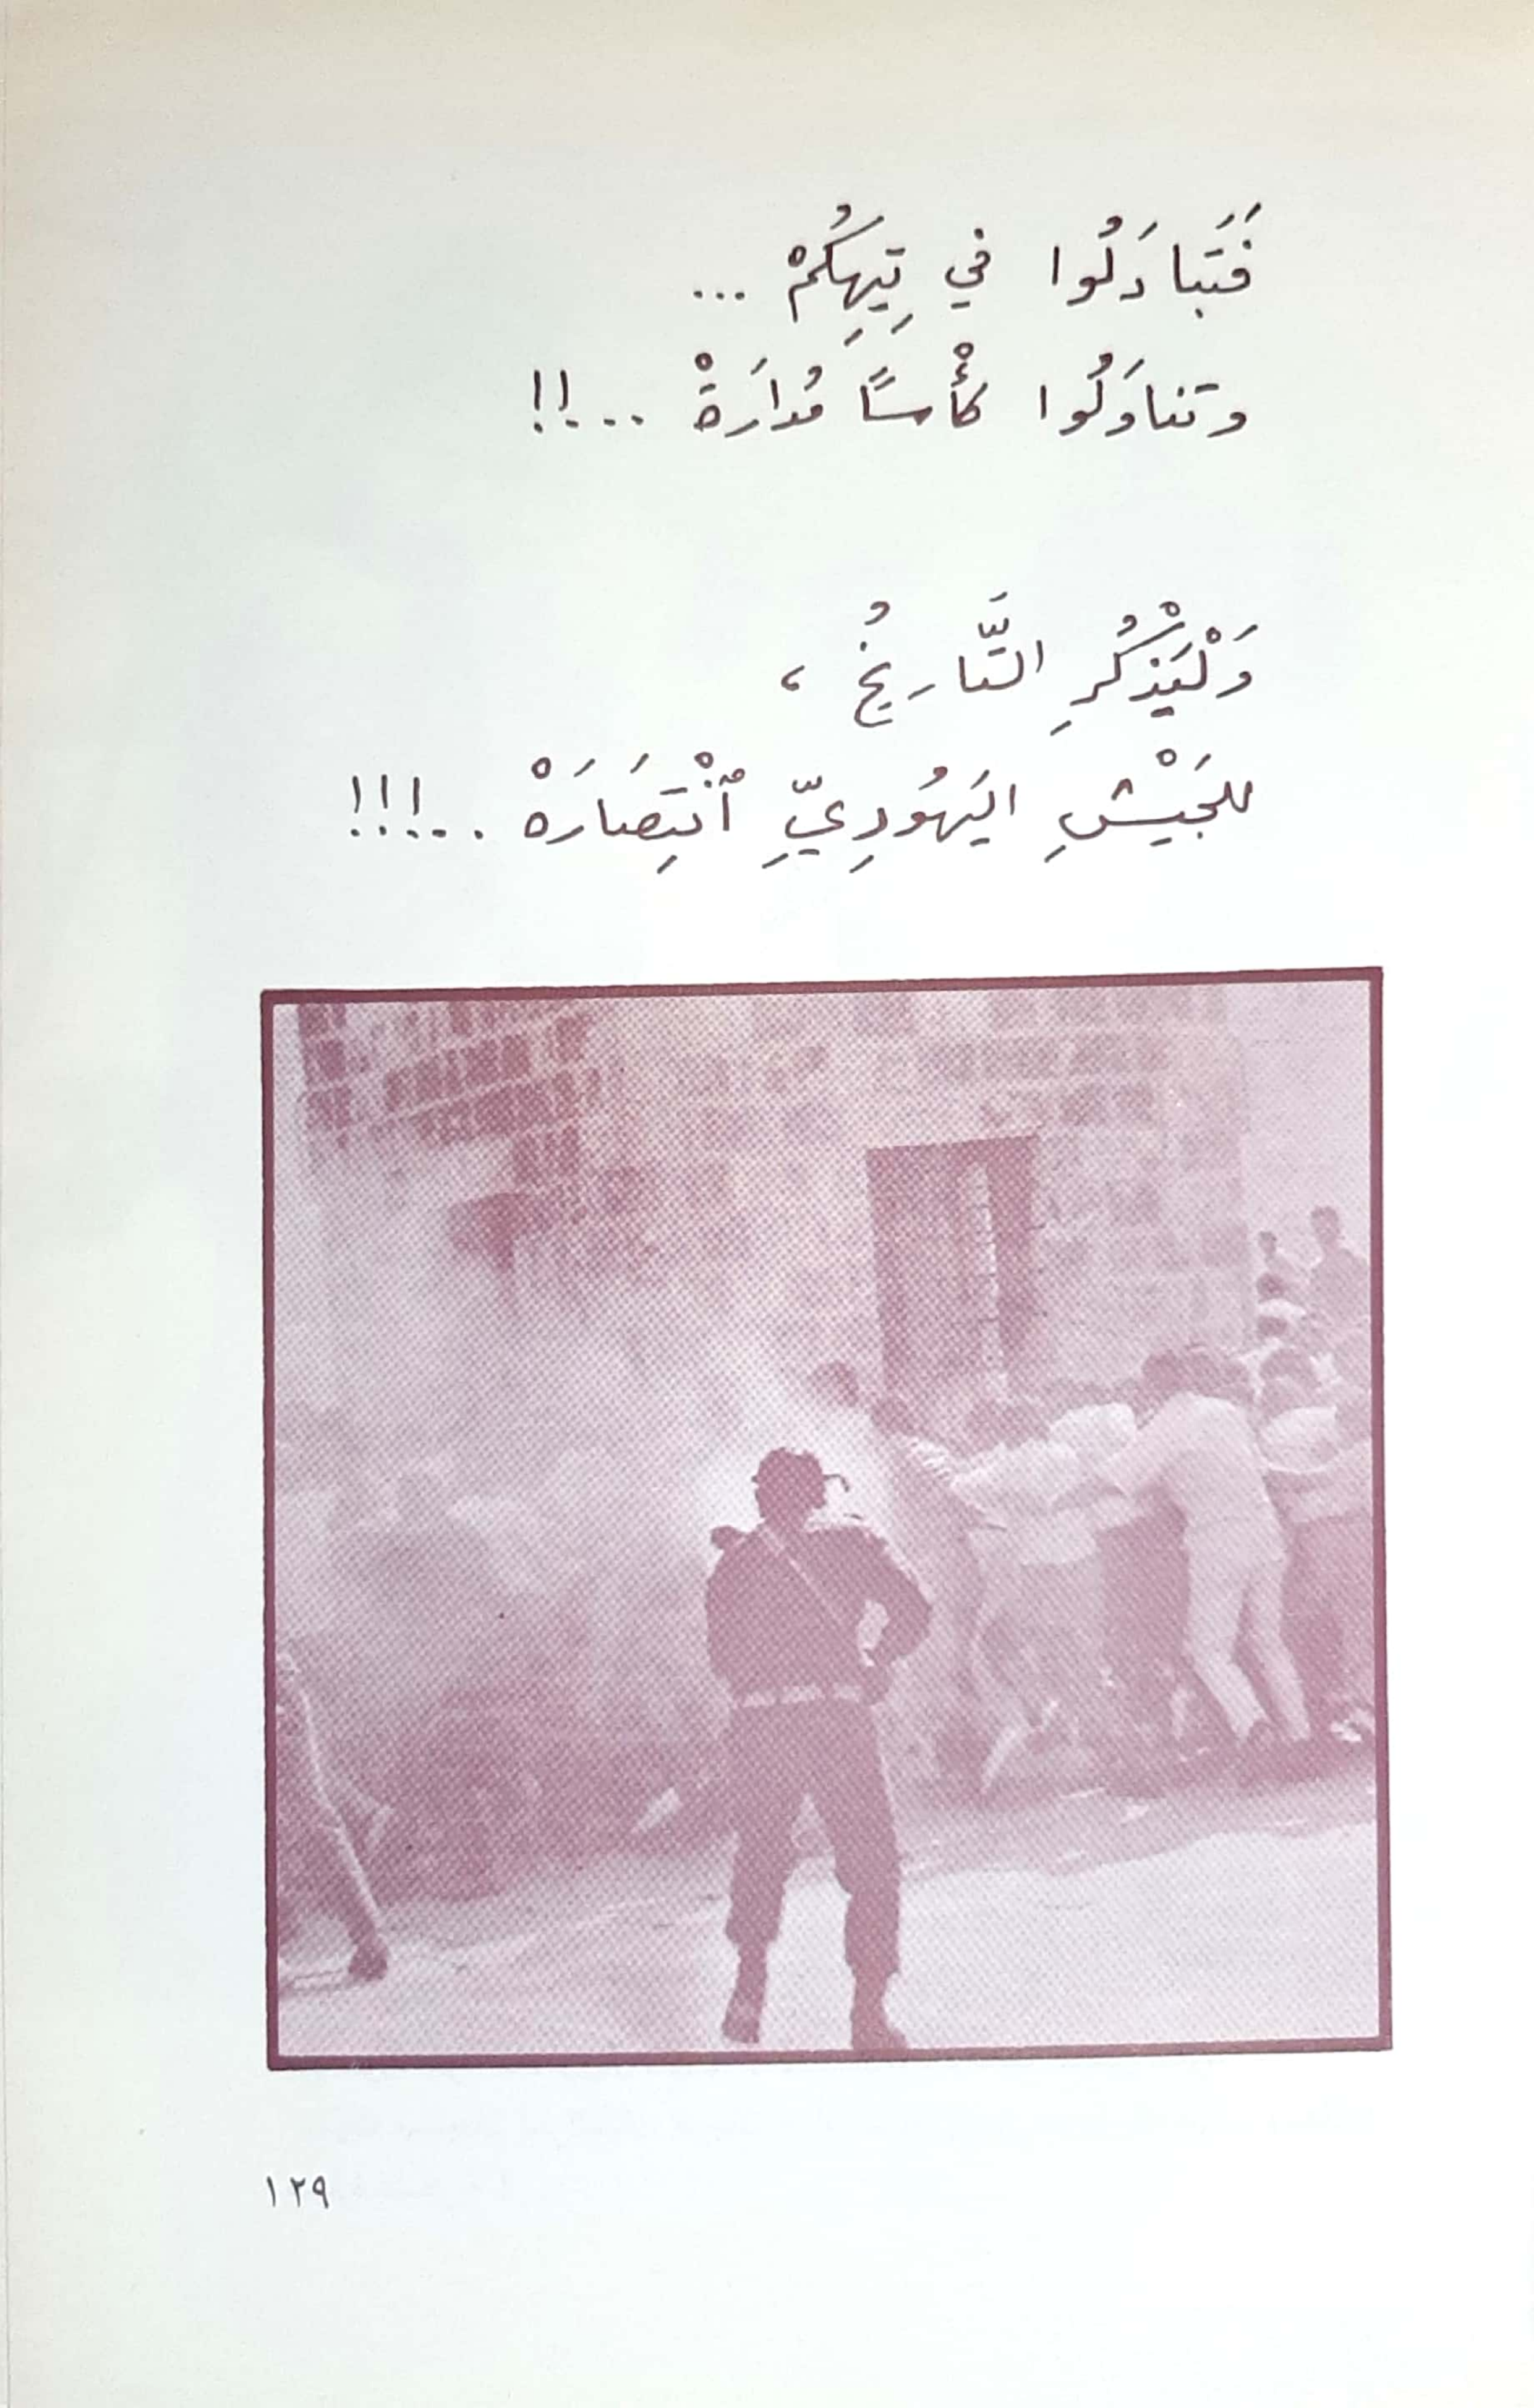 فَتَبادَلُوا في تِيهِكُمْ ...
وتناوَلُوا كأْسًا مُدارَةْ ...!!
وَلْيَذْكُرِ التَّاريخُ ،
للجَيْشِ اليَهُودِيِّ ٱنْتِصَارَهْ ...!!!
١٢٩